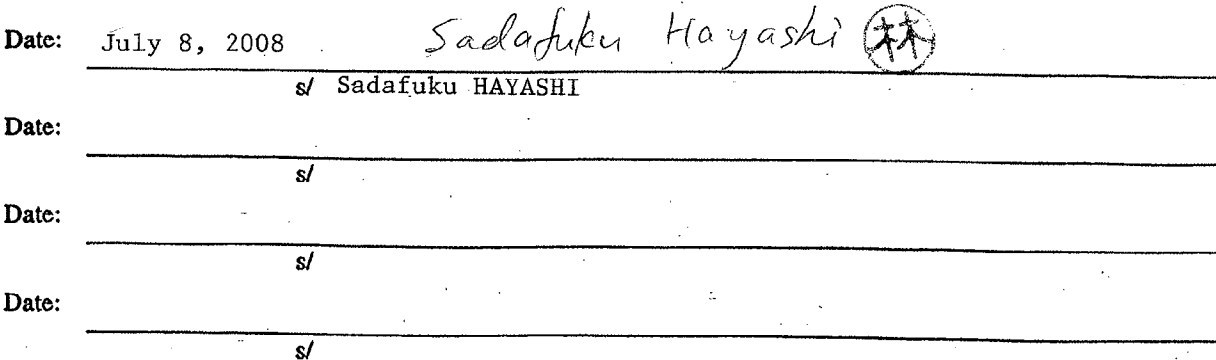 Date: July 8, 2008 Sadafuku Hayashi 林
s/ Sadafuku HAYASHI
Date:
s/
Date:
s/
Date:
s/